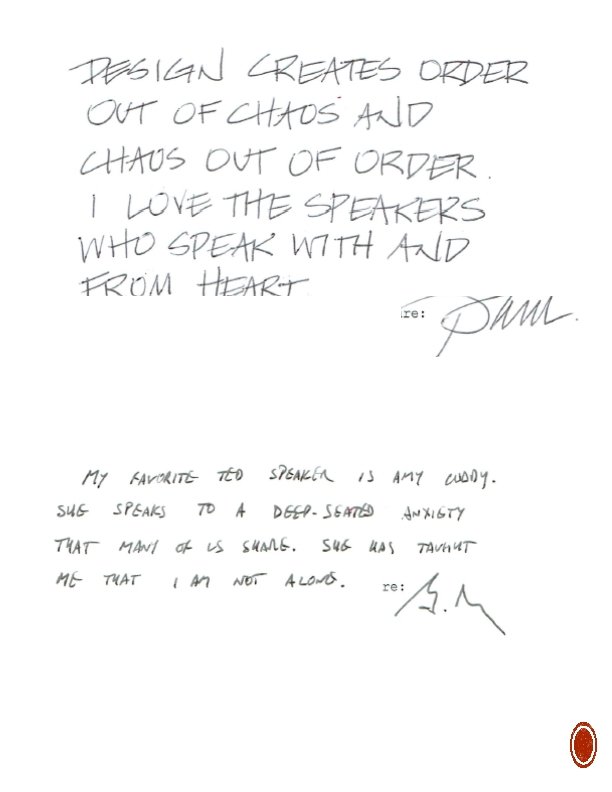 DESIGN CREATES ORDER
OUT OF CHAOS AND
CHAOS OUT OF ORDER.
I LOVE THE SPEAKERS
WHO SPEAK WITH AND
FROM HEART
re:
MY FAVORITE TED SPEAKER IS AMY CUDDY.
SHE SPEAKS TO A DEEP-SEATED ANXIETY
THAT MANY OF US SHARE. SHE HAS TAUGHT
ME THAT I AM NOT ALONE. re: